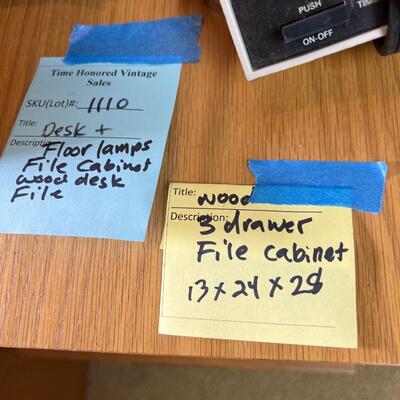 PUSH
TIME
ON-OFF
Time Honored Vintage
Sales
SKU(Lot)#: 1110
Title: Desk +
Description: Floor lamps
File Cabinet
wood desk
File
Title: wood
Description:
3 drawer
File cabinet
13 x 24 x 28